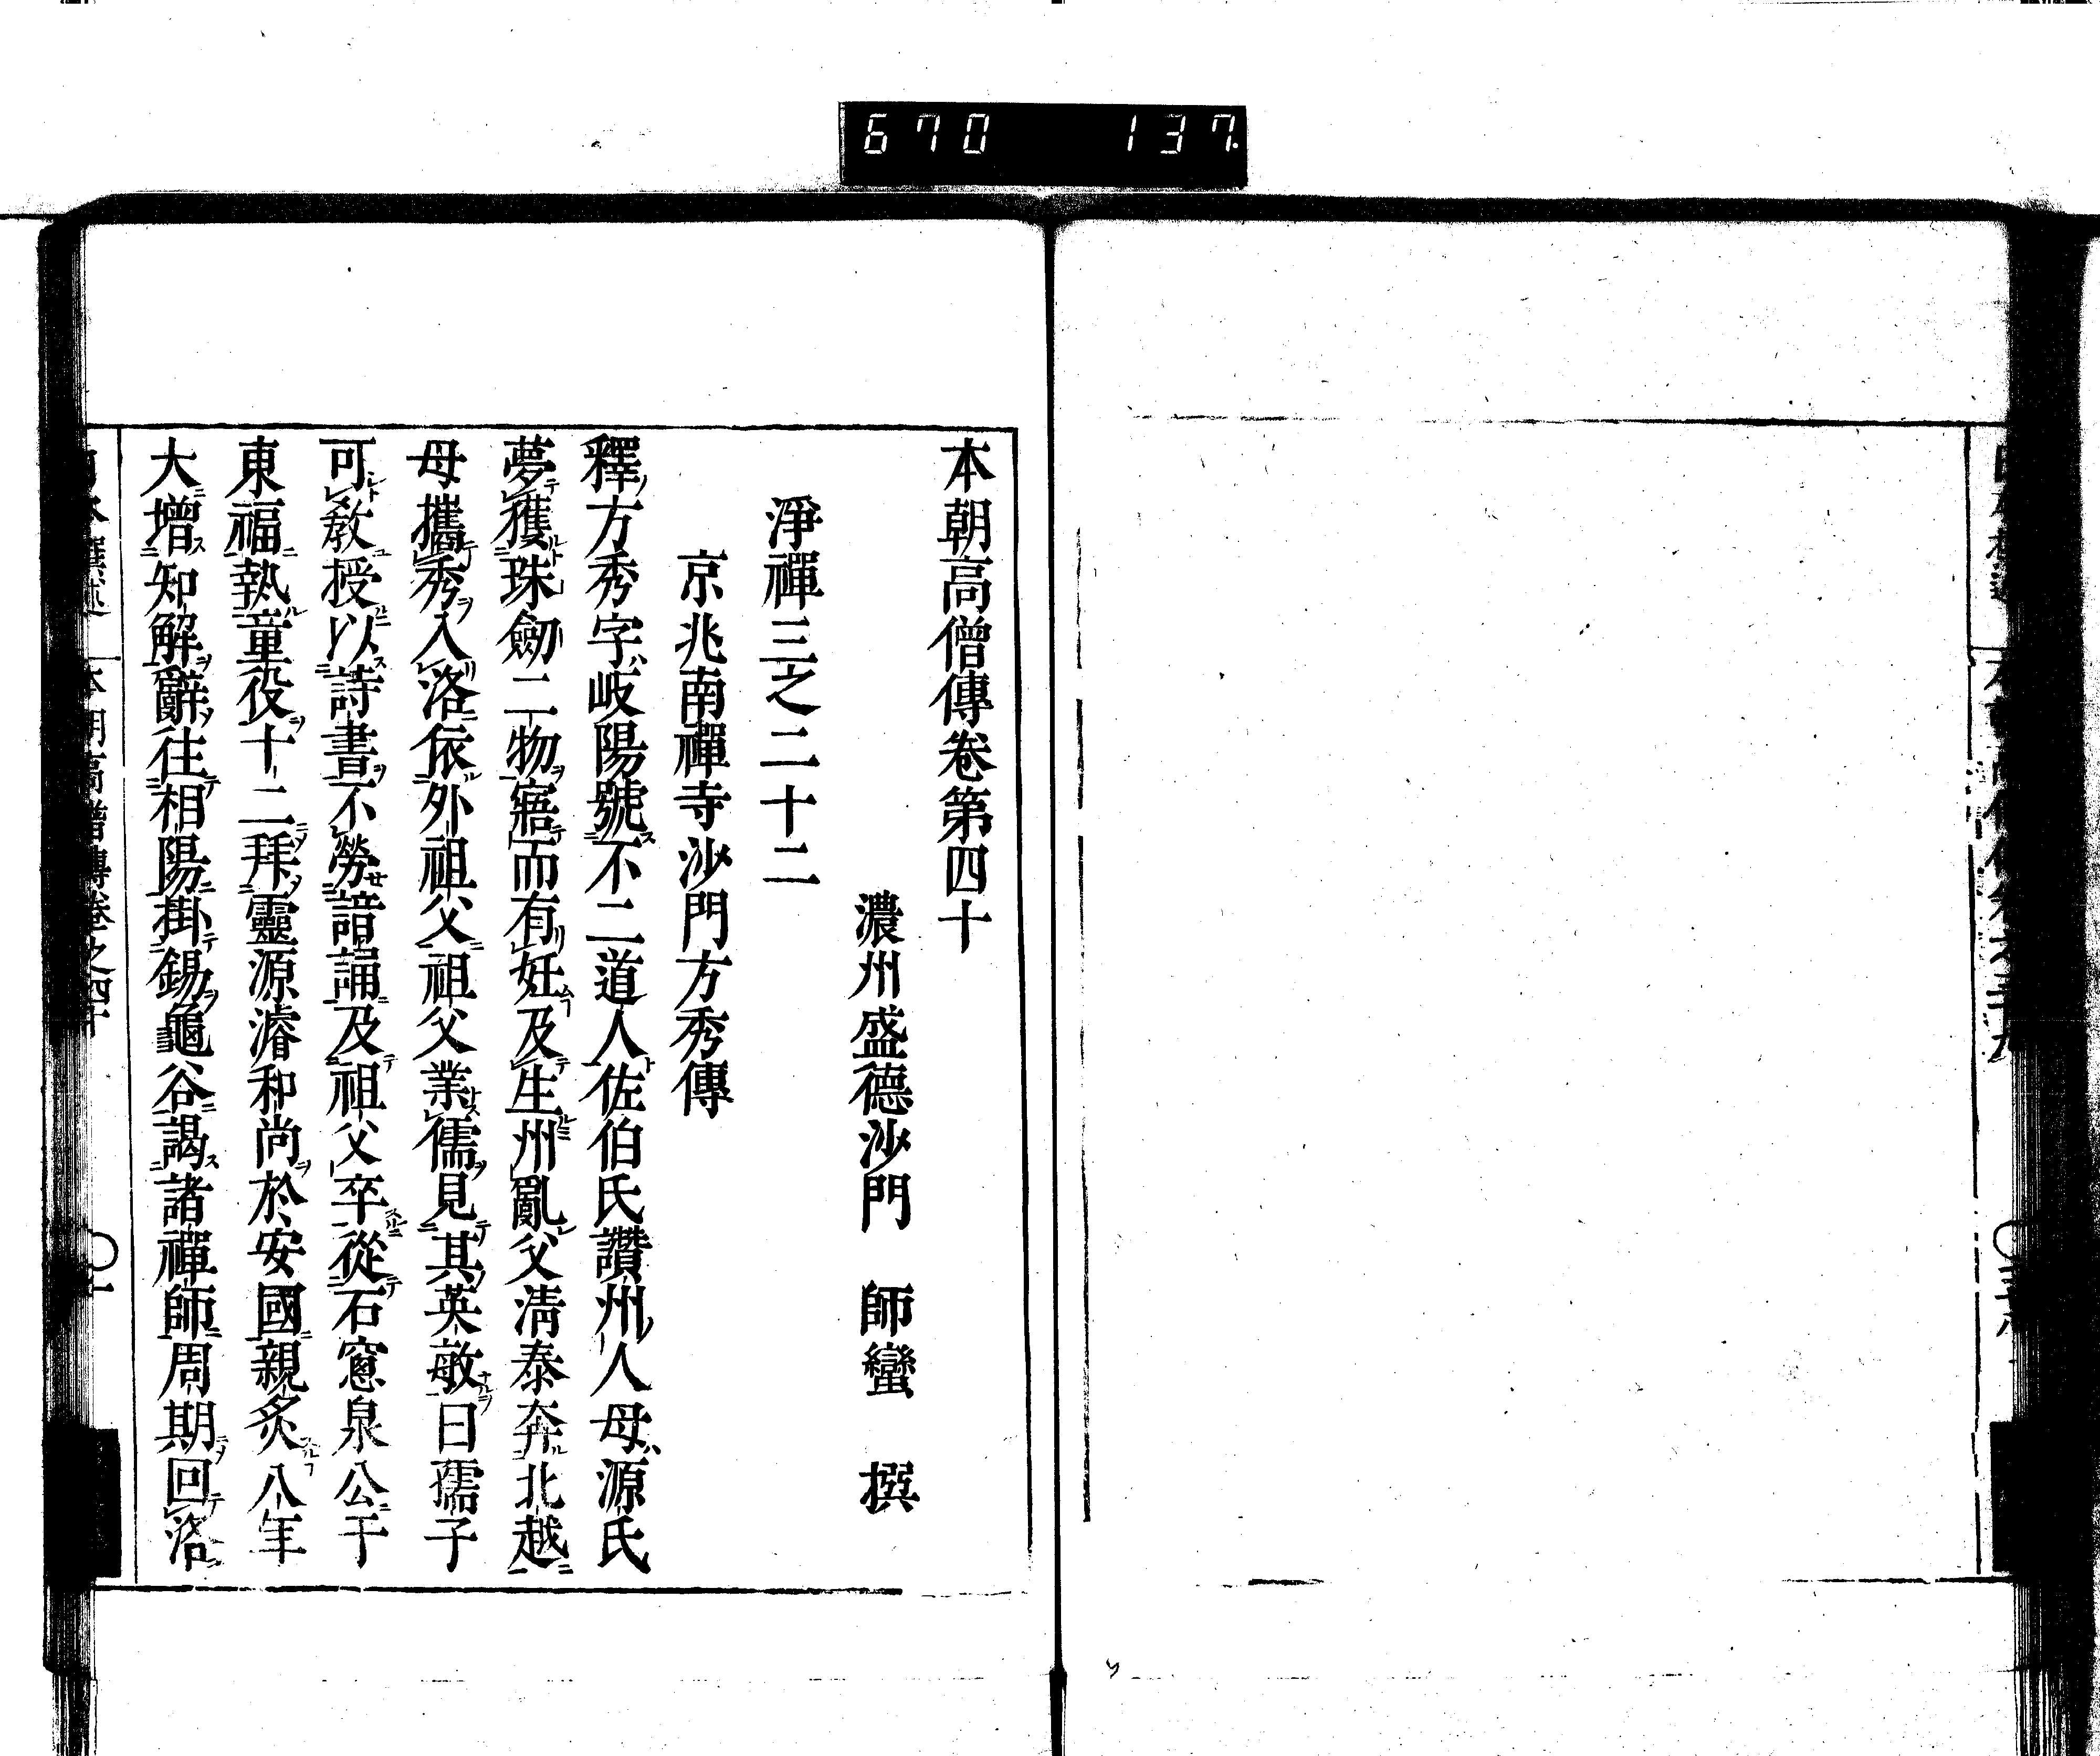 670 137
本朝高僧傳卷第四十
濃州盛德沙門 師蠻 撰
淨禪三之二十二
京兆南禪寺沙門方秀傳
釋方秀字岐陽號不二道人佐伯氏讚州人母源氏
夢獲珠劒二物寤而有妊及生州亂父淸泰奔北越
母攜秀入洛依外祖父祖父業儒見其英敏曰孺子
可教授以詩書不勞諳誦及祖父卒從石窻泉公于
東福執童役十二拜靈源濬和尚於安國親炙八年
大增知解辭往相陽掛錫龜谷謁諸禪師周期回洛
本朝高僧傳卷之四十 一